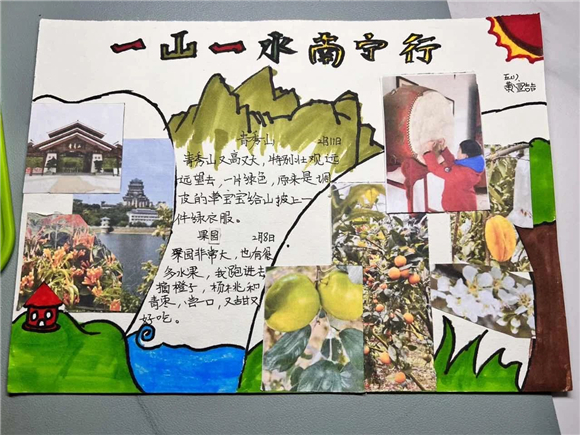 一山一水南宁行
青秀山 2月11日
青秀山又高又大，特别壮观远
远望去，一片绿色，原来是调
皮的草宝宝给山披上一
件绿衣服。
果园 2月8日
果园非常大，也有很
多水果，我跑进去
摘橙子，杨桃和
青枣，尝一口，又甜又
好吃。